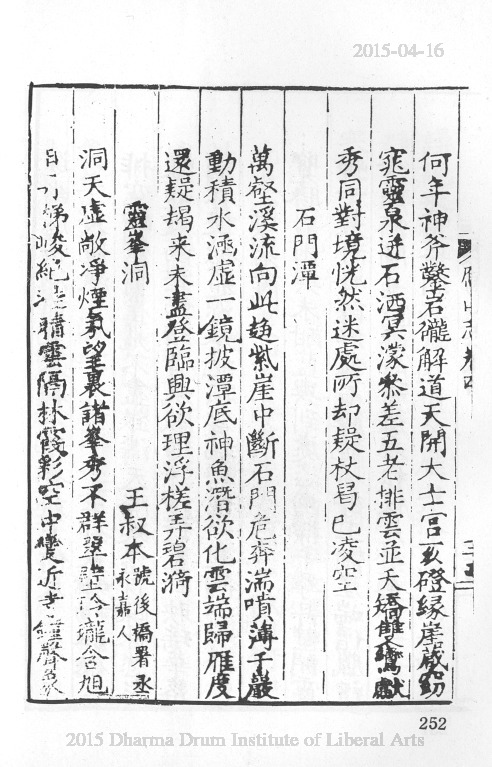 2015-04-16
何年神斧鑿岩巃解道天開大士宮幺磴緣崖蔵窈
窕靈泉迸石洒冥濛叅差五老排雲並夭矯雙鸞獻
秀同對境恍然迷處所却疑杖舄已凌空
石門潭
萬壑溪流向此趍紫崖中斷石門危奔湍噴薄千巖
動積水涵虛一鏡披潭底神魚潛欲化雲端歸雁度
還疑朅来未盡登臨興欲理浮槎弄碧漪
靈峯洞
王叔本號後橋署丞永嘉人
洞天虛敞凈煙氛望裏諸峯秀不群翠壁玲瓏含旭
日 梯峻絶 晴雲隔林霞彩空中變近寺鐘聲
山志卷四
252
2015 Dharma Drum Institute of Liberal Arts